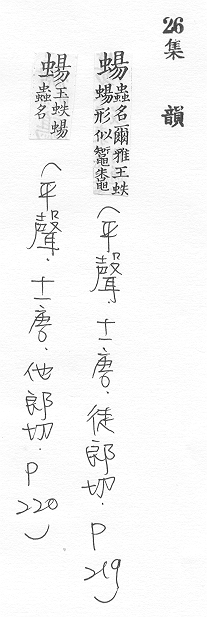 26 集韻
蝪 蟲名爾雅王蛈
蝪形似鼅鼄
(平聲．十一唐．徒郎切．P219)
蝪 王蛈蝪
蟲名
(平聲．十一唐．他郎切．P220)